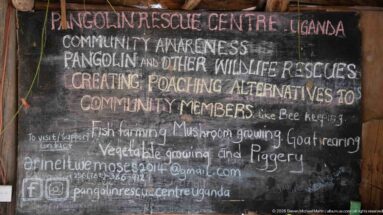 PANGOLIN RESCUE CENTRE UGANDA
COMMUNITY AWARENESS
PANGOLIN AND OTHER WILDLIFE RESCUES
CREATING POACHING ALTERNATIVES TO
COMMUNITY MEMBERS like Bee keeping.
Fish farming Mushroom growing Goat rearing
Vegetable growing and Piggery
To visit/Support
Contact
arineitwemoses2014@gmail.com
pangolinrescuecentreUganda